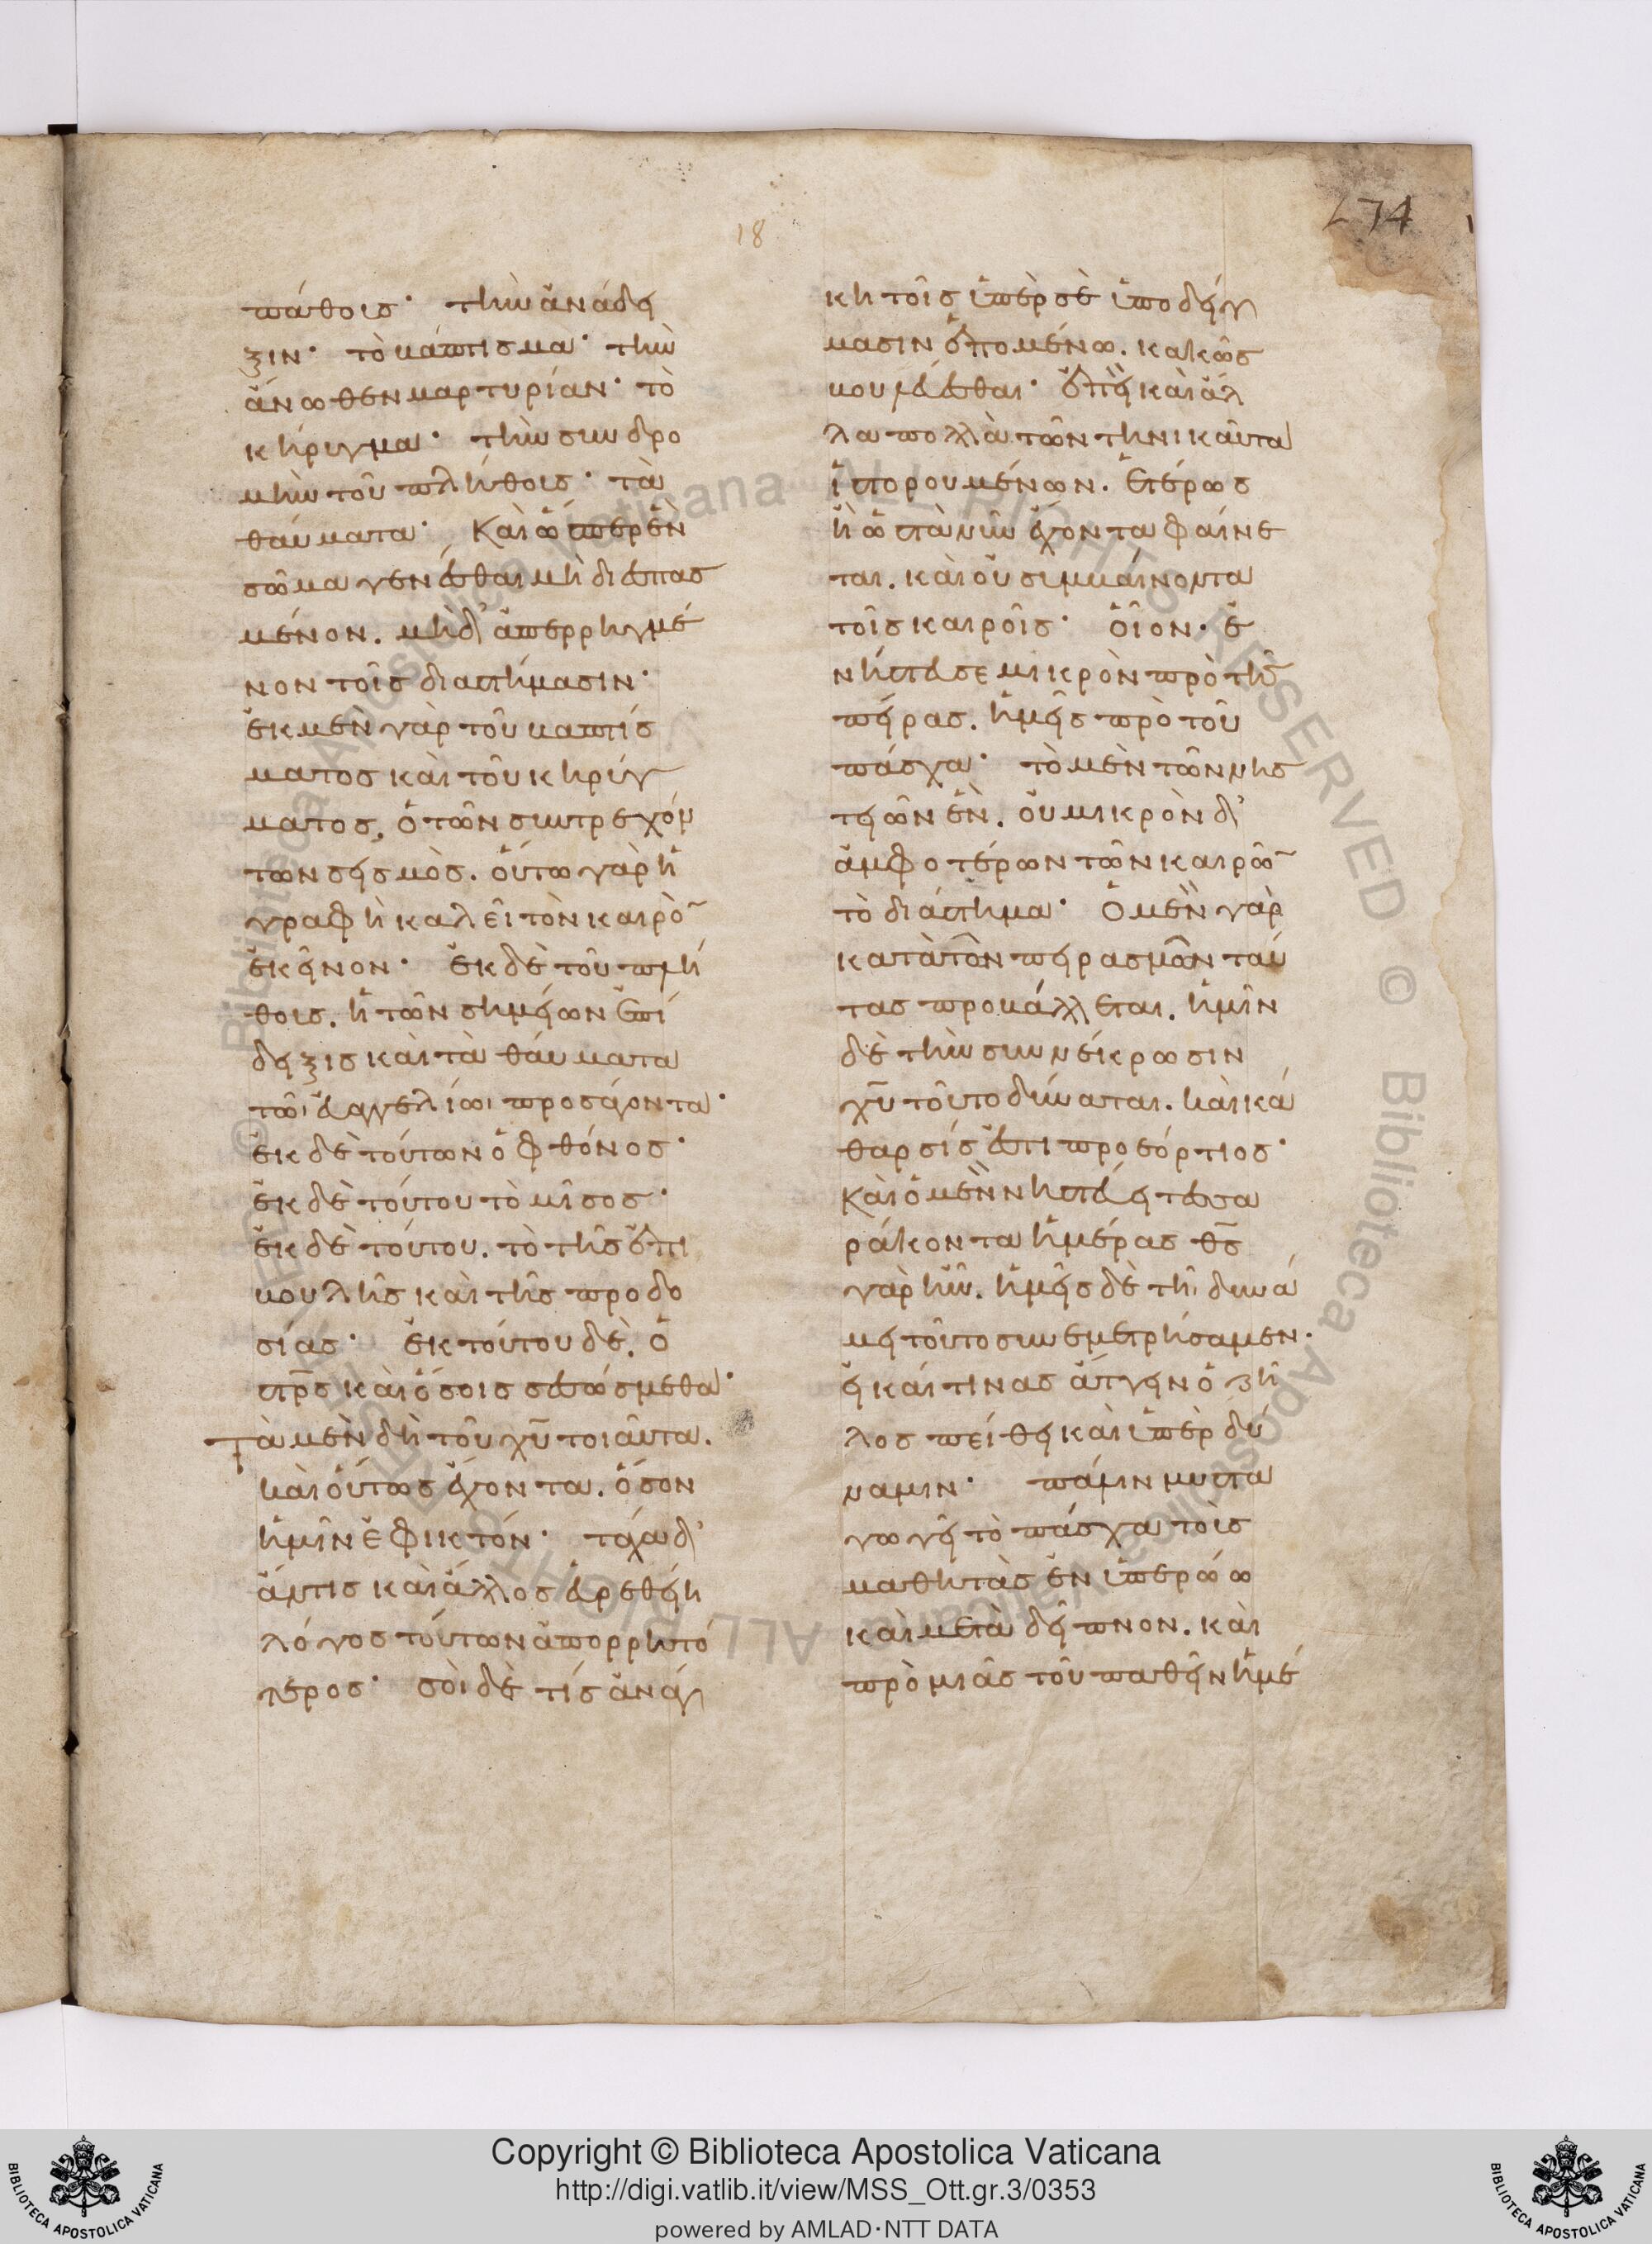 18
274
πάθοισ· τὴν ἀνάδει
ξιν· τὸ βάπτισμα· τὴν
ἄνωθεν μαρτυρίαν· τὸ
κήρυγμα· τὴν συνδρο
μὴν τοῦ πλήθουσ· τὰ
θαύματα· Καὶ ὥσπερ ἓν
σῶμα γενέσθαι μὴ διεσπασ
μένον. μὴδ' ἀπερρηγμέ
νον τοῖσ διαστήμασιν·
ἐκ μὲν γὰρ τοῦ βαπτίσ
ματοσ καὶ τοῦ κηρύγ
ματοσ, ὁ τῶν συντρεχόν
των σεισμὸσ. οὕτω γὰρ ἡ
γραφὴ καλεῖ τὸν καιρὸ̄
ἐκεῖνον· ἐκ δὲ τοῦ πλή
θουσ. ἡ τῶν σημείων ἐπί
δειξισ καὶ τὰ θαύματα
τῶι εὐαγγελίωι προσάγοντα·
ἐκ δὲ τούτων ὁ φθόνοσ·
ἐκ δὲ τούτου τὸ μῖσοσ·
ἐκ δὲ τούτου. τὸ τῆσ ἐπι
βουλῆσ καὶ τῆσ προδο
σίασ· ἐκ τούτου δὲ. ὁ
στ̄ρσ καὶ ὅσοισ σεσώσμεθα·
Τὰ μὲν δὴ τοῦ χ̄υ τοιαῦτα.
καὶ οὕτωσ ἔχοντα. ὅσον
ἡμῖν ἐφικτόν· τάχα δ'
ἄν τισ καὶ ἄλλοσ εὑρεθείη
λόγοσ τούτων ἀπορρητό
τεροσ· σοὶ δὲ τίσ ἀνάγ
κη τοῖσ ὑπὲρ σὲ ὑποδείγ
μασιν ἑπομένω. κακῶσ
βουλεύεσθαι· ἐπεὶ καὶ ἄλ
λα πολλὰ τῶν τηνικαῦτα
ἱστορουμένων. ἑτέρωσ
ἢ ὡσ τὰ νῦν ἔχοντα φαίνε
ται. καὶ οὐ συμβαίνοντα
τοῖσ καιροῖσ· οἷον· ἐ
νήστευσε μικρὸν πρὸ τῆσ
πείρασ. ἡμεῖσ πρὸ τοῦ
πάσχα· τὸ μὲν τῶν νησ
τειῶν ἓν. οὐ μικρὸν δ'
ἀμφοτέρων τῶν καιρῶ̄
τὸ διάστημα· Ὁ μὲν γὰρ
κατὰ τῶν πειρασμῶν ταύ
τασ προβάλλεται. ἡμῖν
δὲ τὴν συννέκρωσιν
χ̄υ τοῦτο δύναται. καὶ κά
θαρσίσ ἐστι προεόρτιοσ·
Καὶ ὁ μὲν νηστεύει τεσσα
ράκοντα ἡμέρασ θ̄σ
γὰρ ἦν. ἡμεῖσ δὲ τῆι δυνά
μει τοῦτο συνεμετρήσαμεν·
εἰ καί τινασ ἄττειν ὁ ζῆ
λοσ πείθει καὶ ὑπὲρ δύ
ναμιν· πάλιν μυστα
γωγεῖ τὸ πάσχα τοὺσ
μαθητὰσ ἐν ὑπερώω
καὶ μετὰ δεῖπνον. καὶ
πρὸ μιᾶσ τοῦ παθεῖν ἡμέ
Copyright © Biblioteca Apostolica Vaticana
http://digi.vatlib.it/view/MSS_Ott.gr.3/0353
powered by AMLAD·NTT DATA
BIBLIOTECA APOSTOLICA VATICANA
BIBLIOTECA APOSTOLICA VATICANA